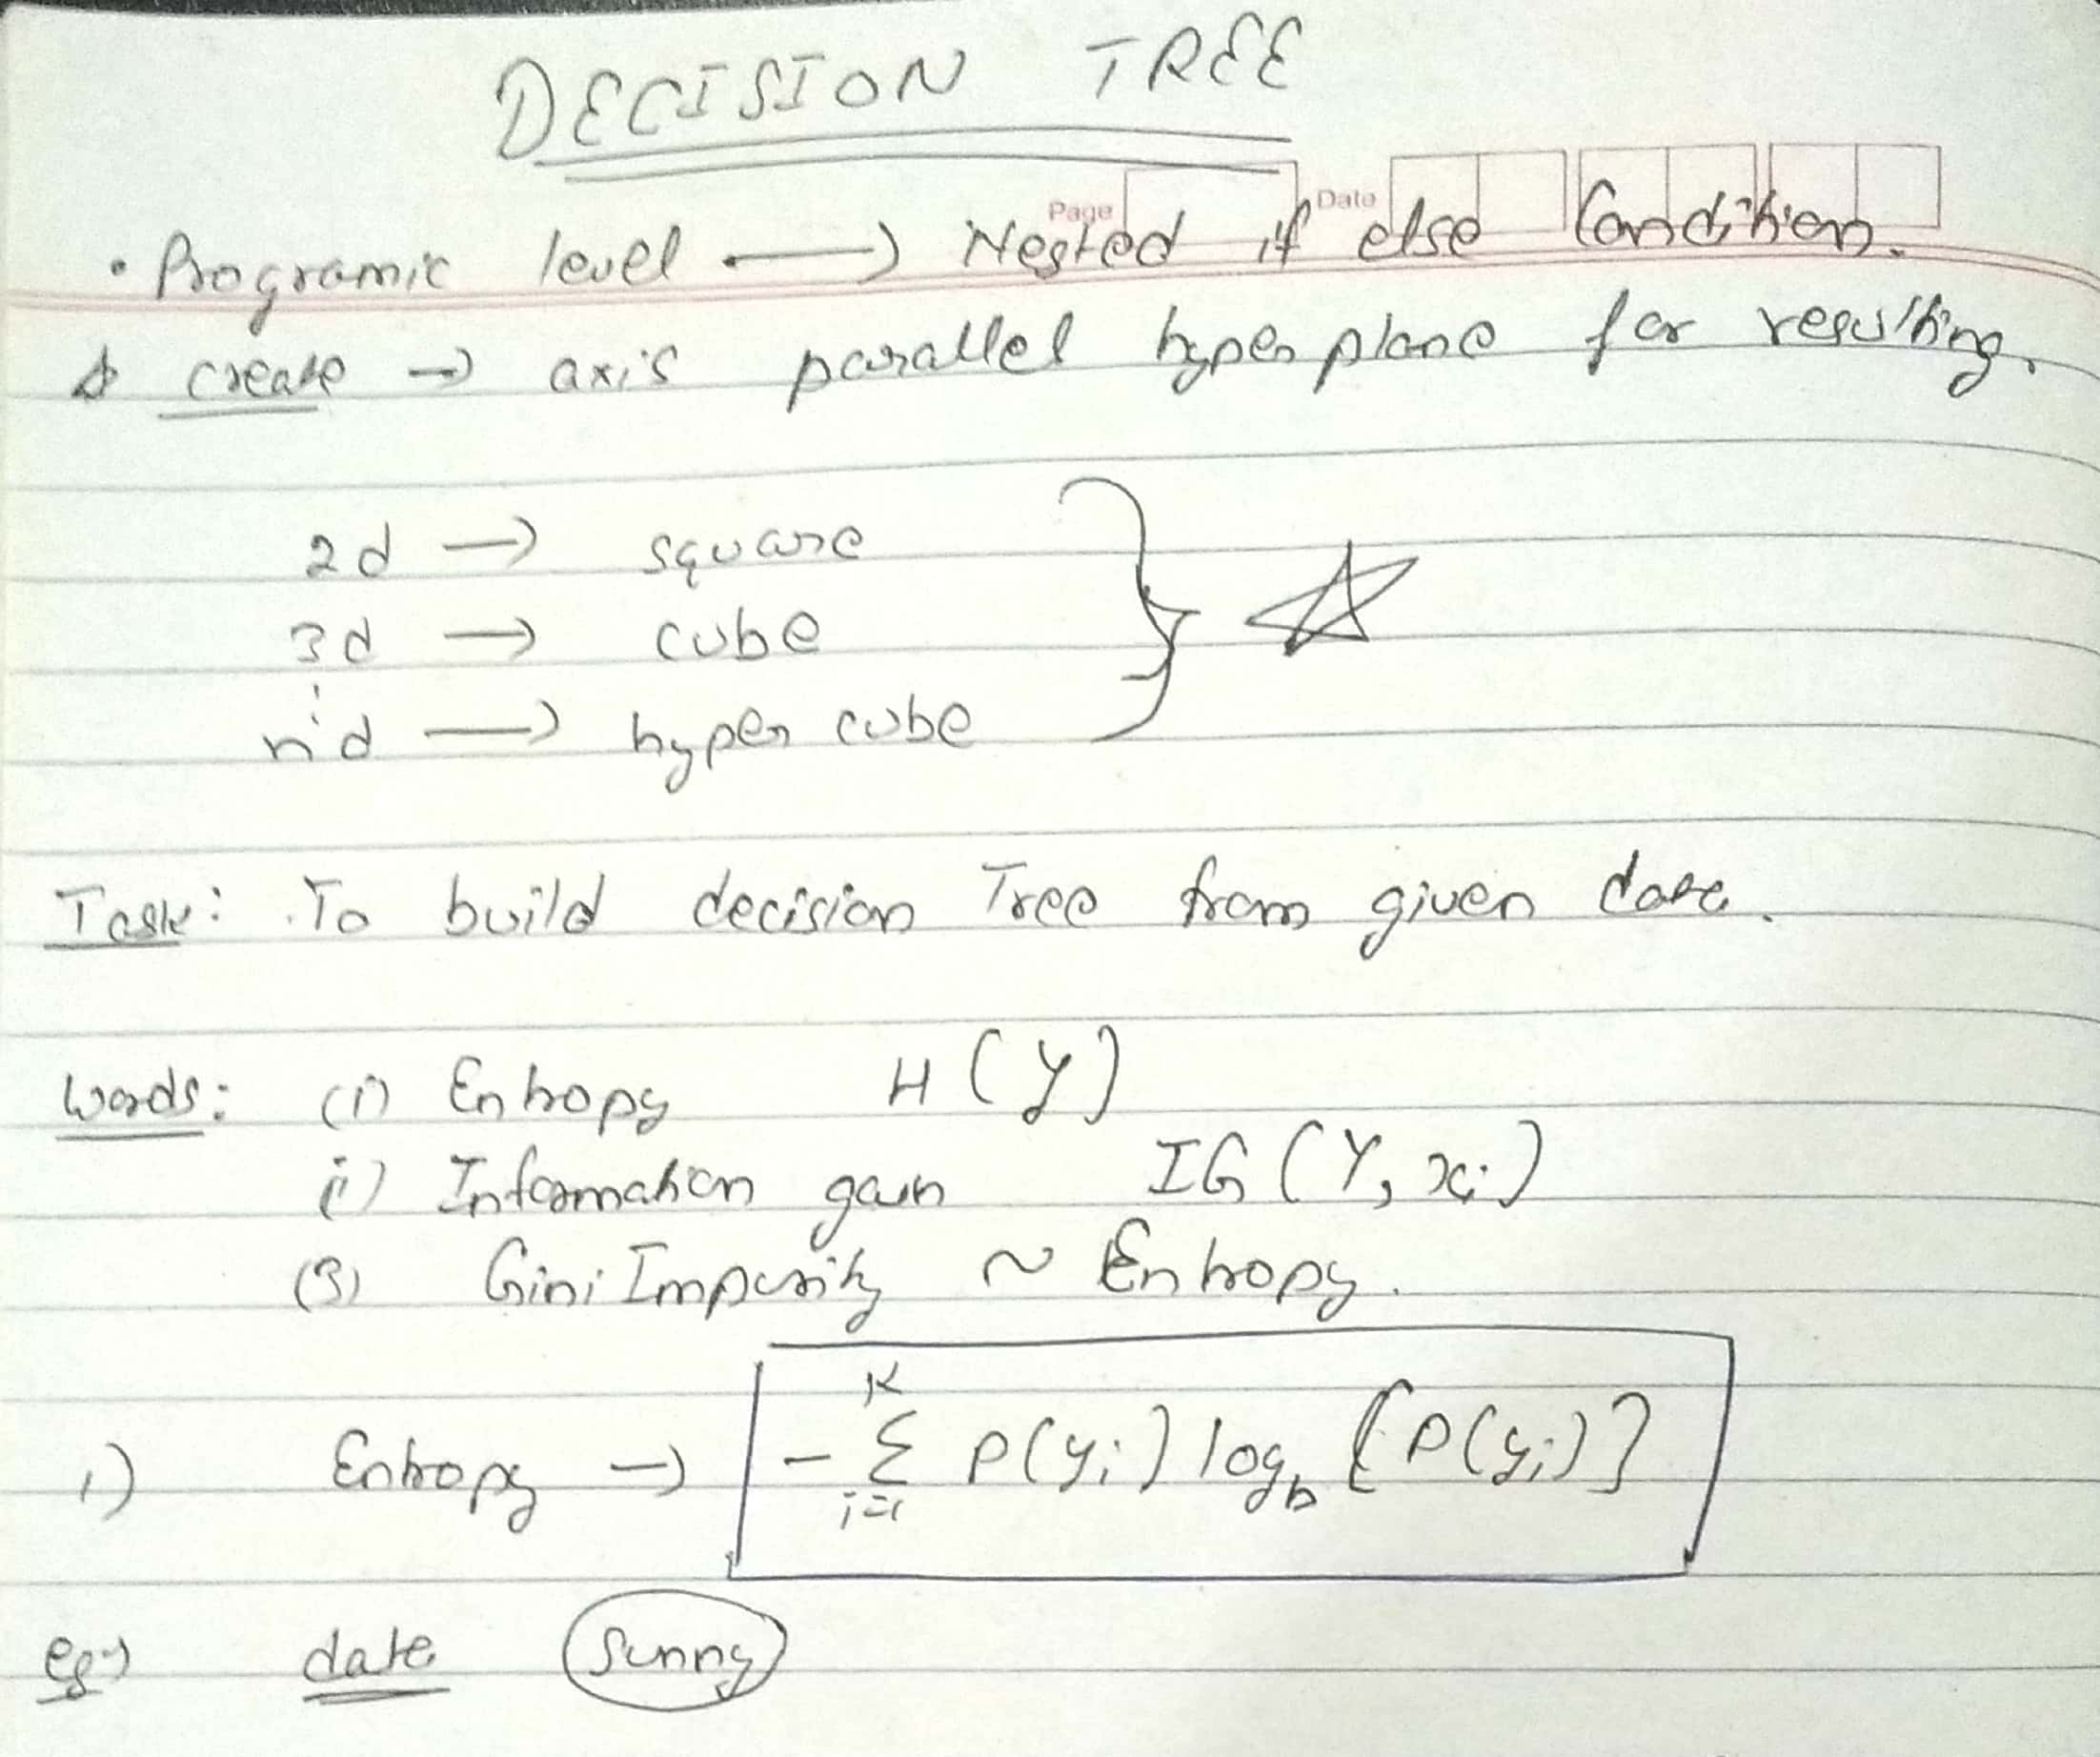 DECISION TREE
Page Date
• Programic level → Nested if else Condition.
create → axis parallel hyper plane for resulting.
2d → square
3d → cube
n'd → hyper cube
Task: To build decision Tree from given data.
Words: (i) Entropy H(Y)
ii) Information gain IG(Y, xi)
(3) Gini Impurity ~ Entropy.
1) Entropy → - K Σ i=1 P(yi) logb {P(yi)}
eg→ data Sunny